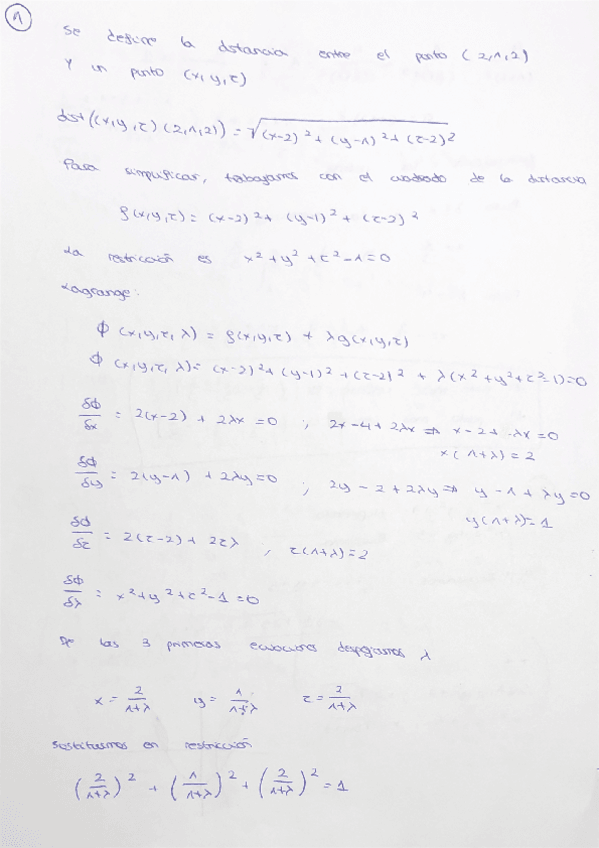 1
Se define la distancia entre el punto (2,1,2)
y un punto (x,y,z)
dist((x,y,z)(2,1,2)) = √(x-2)² + (y-1)² + (z-2)²
Para simplificar, trabajamos con el cuadrado de la distancia
f(x,y,z) = (x-2)² + (y-1)² + (z-2)²
La restricción es x² + y² + z² - 1 = 0
Lagrange:
ϕ(x,y,z,λ) = f(x,y,z) + λg(x,y,z)
ϕ(x,y,z,λ) = (x-2)² + (y-1)² + (z-2)² + λ(x² + y² + z² - 1) = 0
δϕ/δx = 2(x-2) + 2λx = 0 ; 2x - 4 + 2λx ⇒ x - 2 + λx = 0
x(1+λ) = 2
δϕ/δy = 2(y-1) + 2λy = 0 ; 2y - 2 + 2λy ⇒ y - 1 + λy = 0
y(1+λ) = 1
δϕ/δz = 2(z-2) + 2zλ ; z(1+λ) = 2
δϕ/δλ = x² + y² + z² - 1 = 0
De las 3 primeras ecuaciones despejamos λ
x = 2/1+λ y = 1/1+λ z = 2/1+λ
Sustituimos en restricción
(2/1+λ)² + (1/1+λ)² + (2/1+λ)² = 1